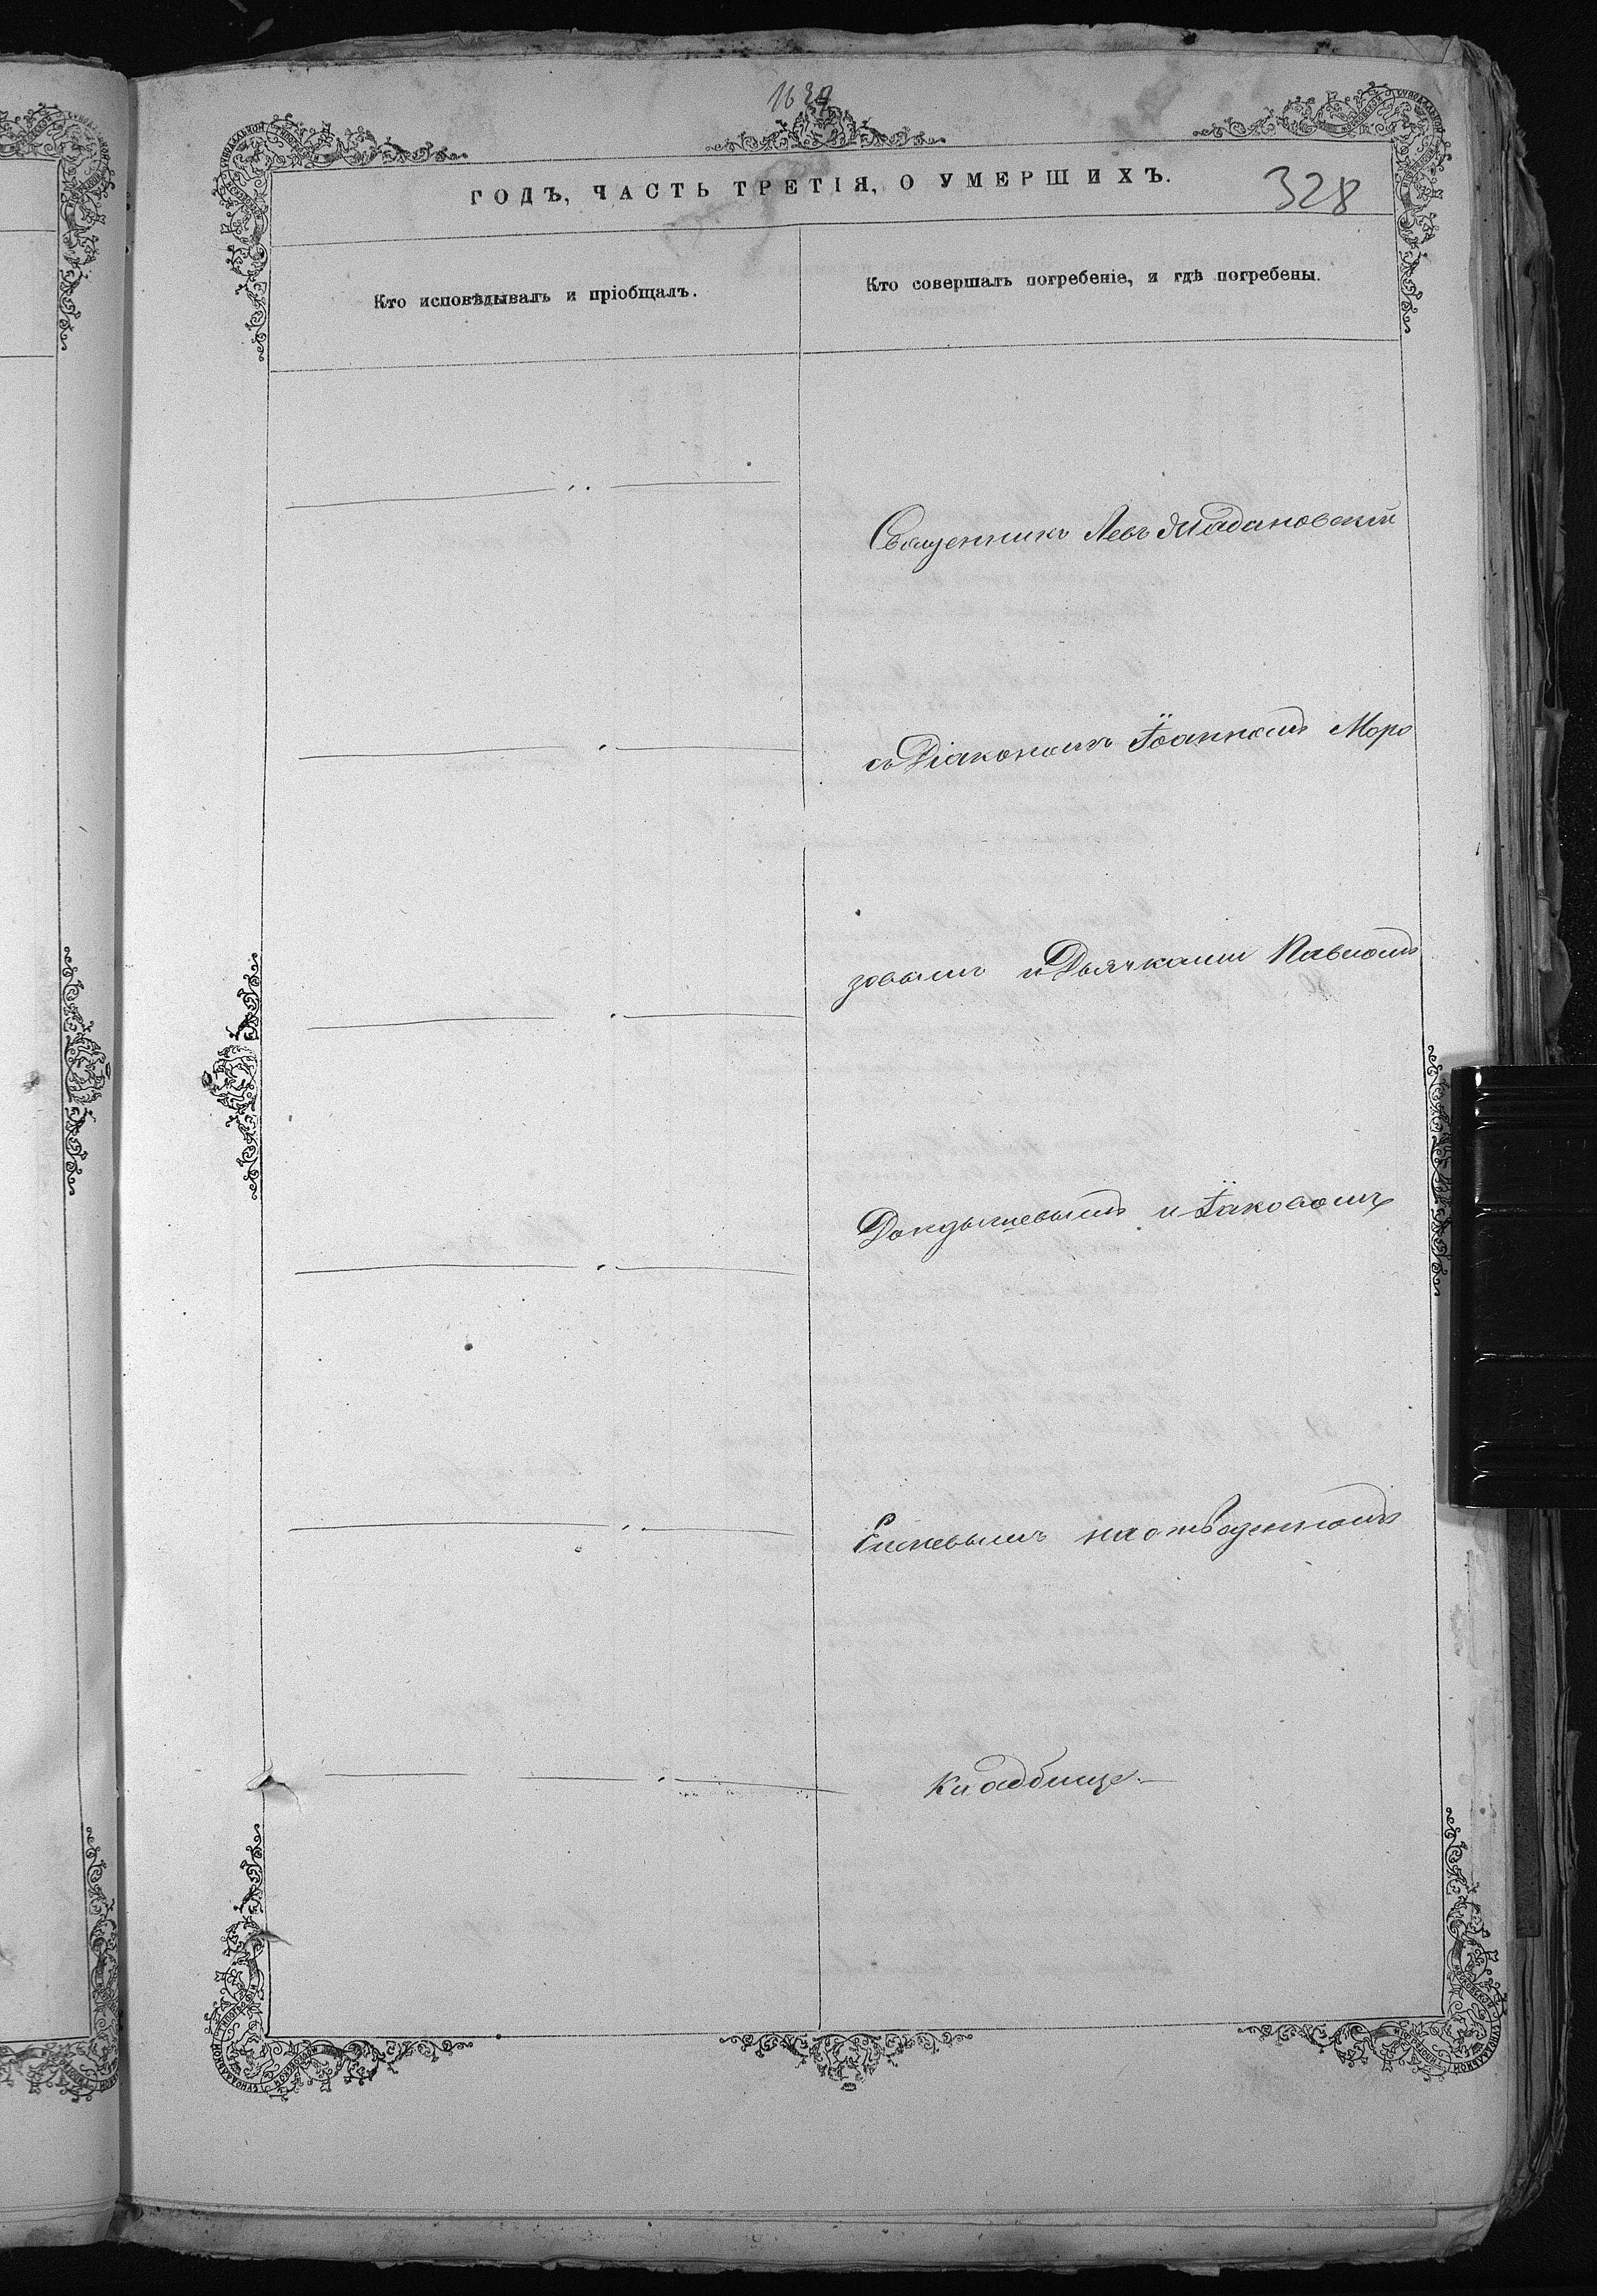 1639
ГОДЪ, ЧАСТЬ ТРЕТІЯ, О УМЕРШИХЪ.
328
Кто исповѣдывалъ и пріобщалъ.
Кто совершалъ погребеніе, и гдѣ погребены.
Священникъ Левъ
съ Діакономъ Іоанномъ Моро
зовымъ и Дьячками Павломъ
и Іаковомъ
на отведенномъ
кладбище.